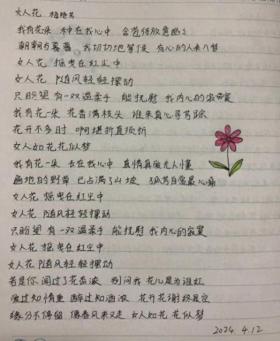 女人花 梅艳芳
我有花一朵 种在我心中 含苞待放意幽幽
朝朝与暮暮 我切切地等候 有心的人来入梦
女人花 摇曳在红尘中
女人花 随风轻轻摆动
只盼望 有一双温柔手 能抚慰 我内心的寂寞
我有花一朵 花香满枝头 谁来真心寻芳踪
花开不多时 啊堪折直须折
女人如花花似梦
我有花一朵 长在我心中 真情真爱无人懂
遍地的野草 已占满了山坡 孤芳自赏最心痛
女人花 摇曳在红尘中
女人花 随风轻轻摆动
只盼望 有一双温柔手 能抚慰 我内心的寂寞
女人花 摇曳在红尘中
女人花 随风轻轻摆动
若是你 闻过了花香浓 别问我 花儿是为谁红
爱过知情重 醉过知酒浓 花开花谢终是空
缘分不停留 像春风来又走 女人如花 花似梦
2024.4.12